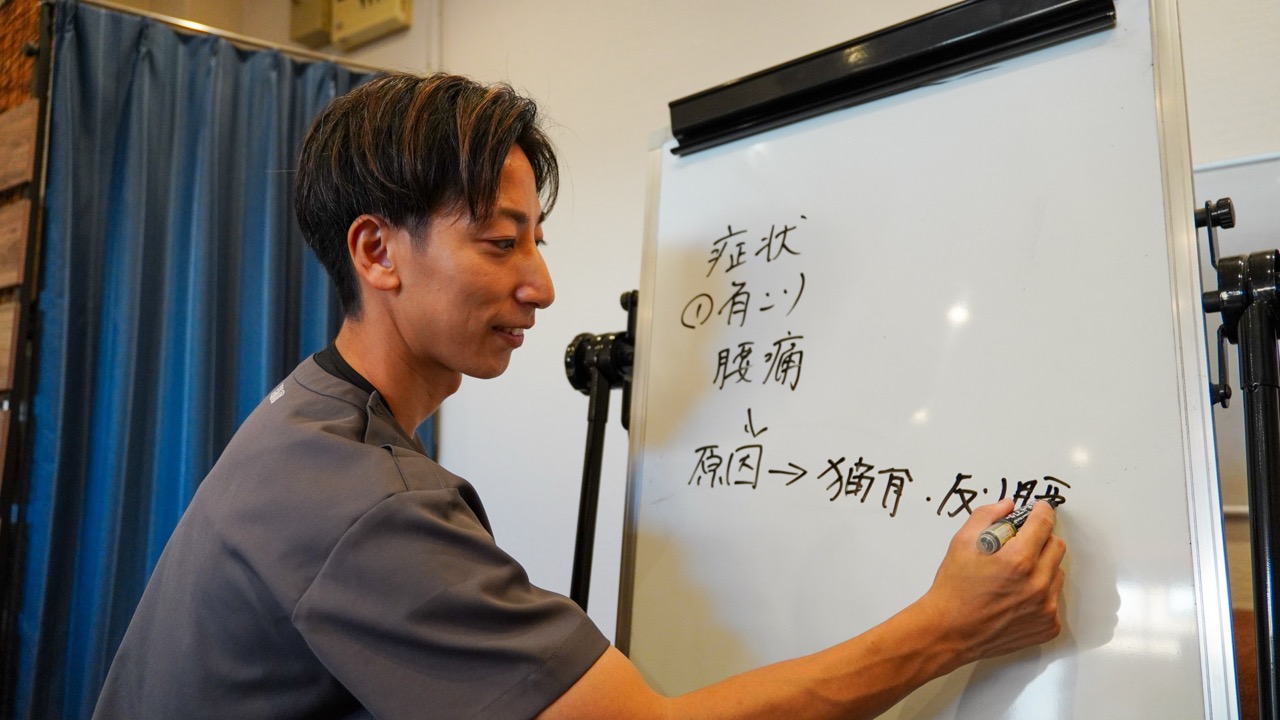 症状
①肩こり
腰痛
↓
原因→猫背・反り腰